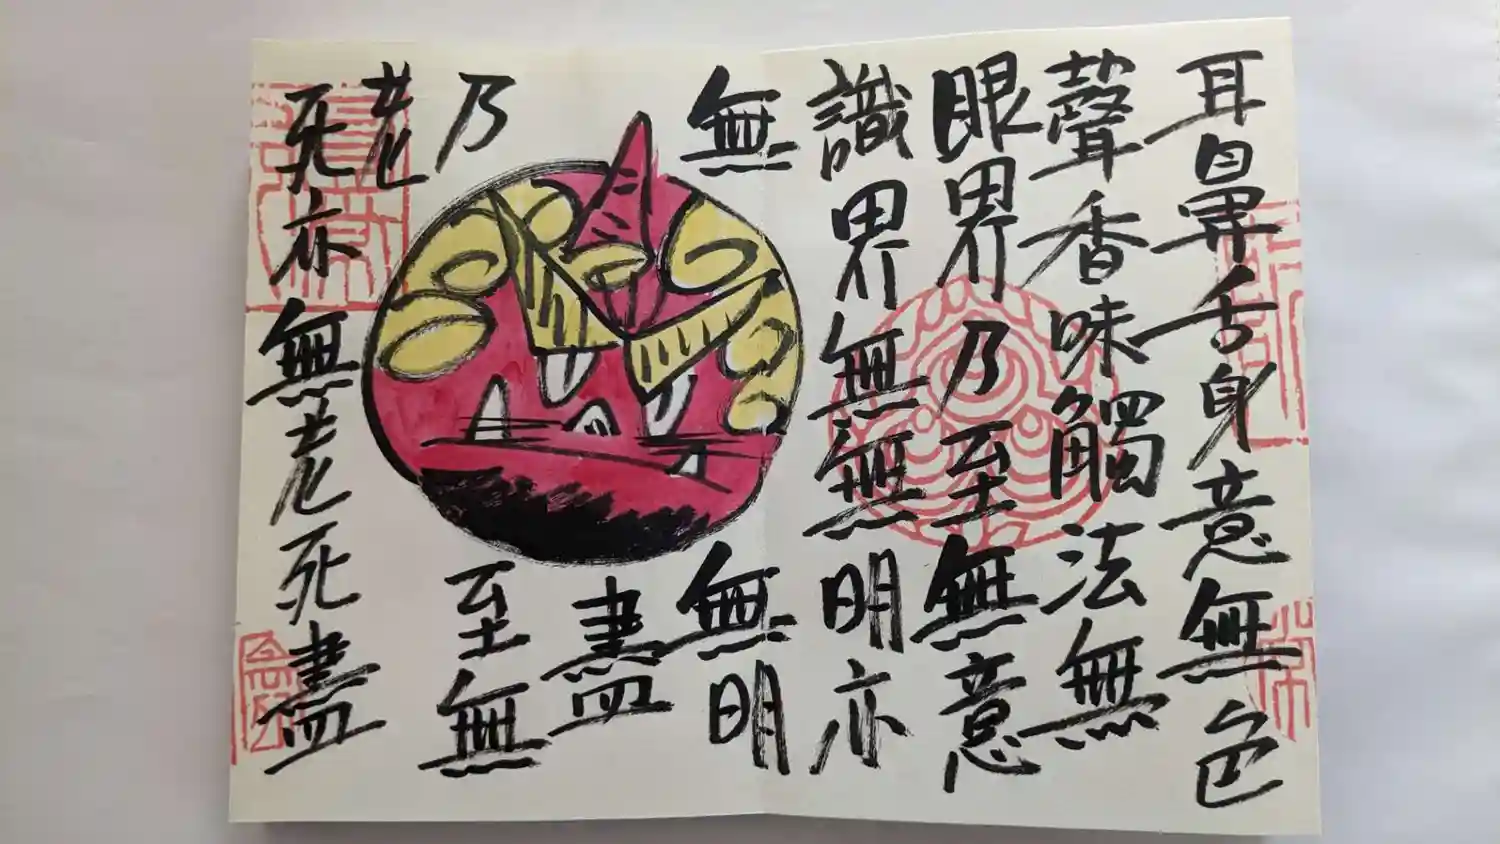 耳鼻舌身意無色
聲香味觸法無
眼界乃至無意
識界無無明亦
無無明
盡
乃至無
老
死亦無老死盡